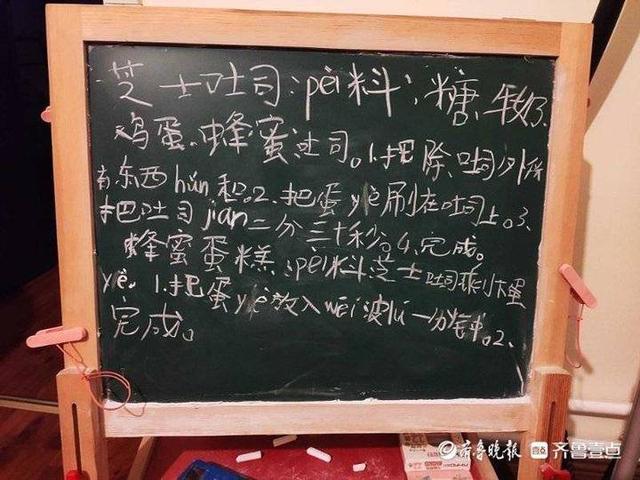 芝士吐司:pèi料:糖、牛奶、
鸡蛋、蜂蜜吐司。1.把除吐司外所
有东西hùn和。2.把蛋yè刷在吐司上。3.
把吐司jiān二分三十秒。4.完成。
蜂蜜蛋糕:pèi料芝士吐司剩下蛋
yè。1.把蛋yè放入wēi波lú一分钟。2.
完成。
齐鲁晚报 齐鲁壹点